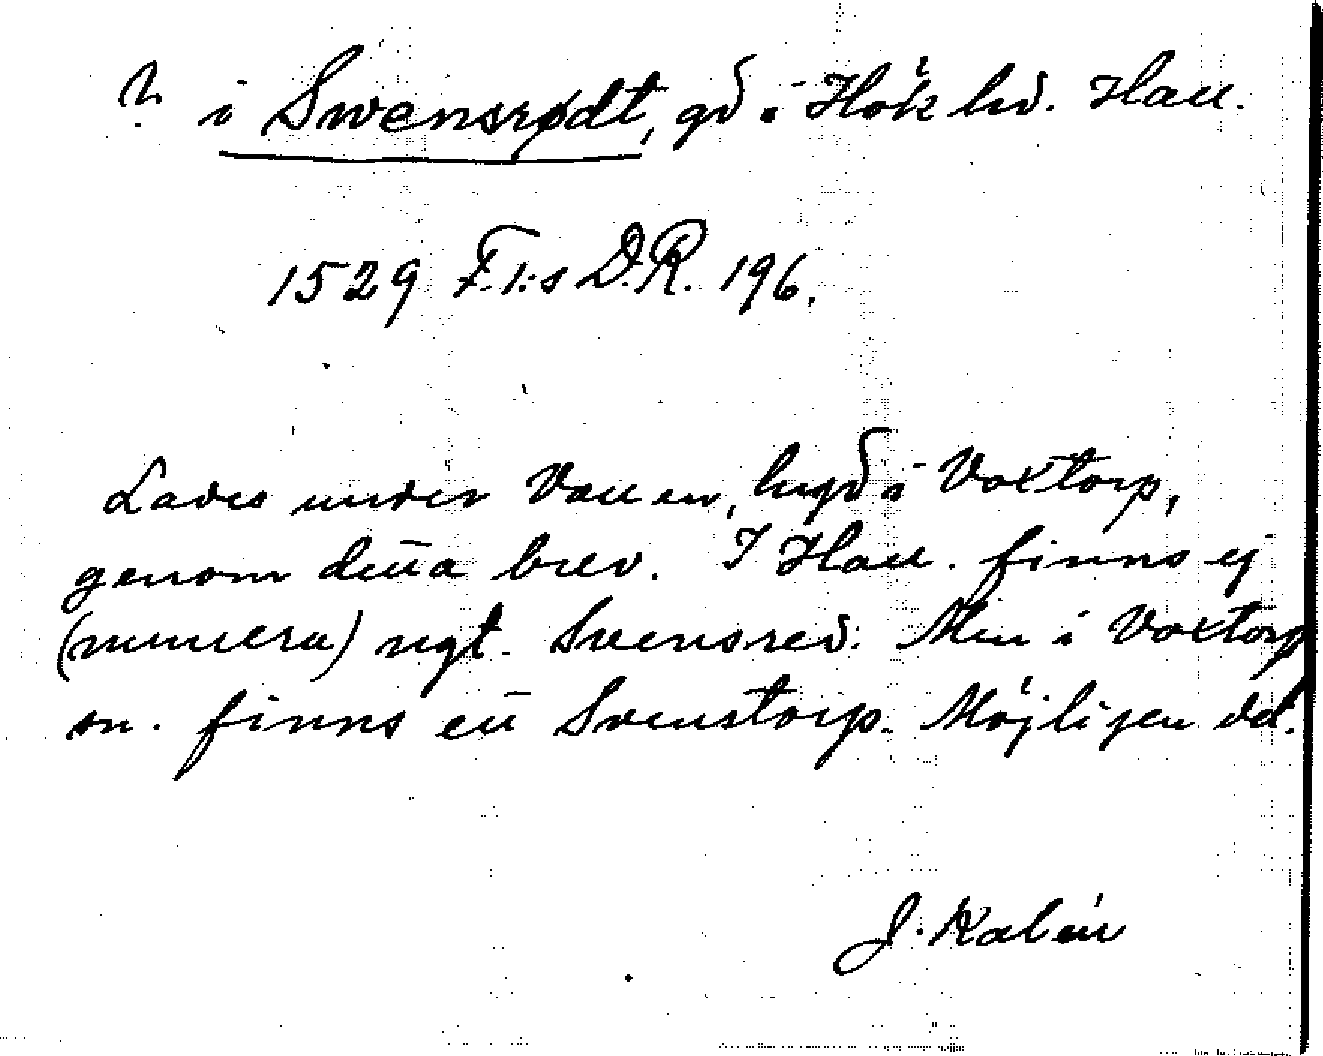 ? i Swensrødt, gd i Hök hd. Hall.
1529 F.I:s D.R. 196.
Lades under Vallen, hgd i Voxtorp,
genom detta brev. I Hall. finns ej
(numera) ngt. Svensred. Men i Voxtorp
sn. finns ett Svenstorp. Möjligen dd.
J. Kalén